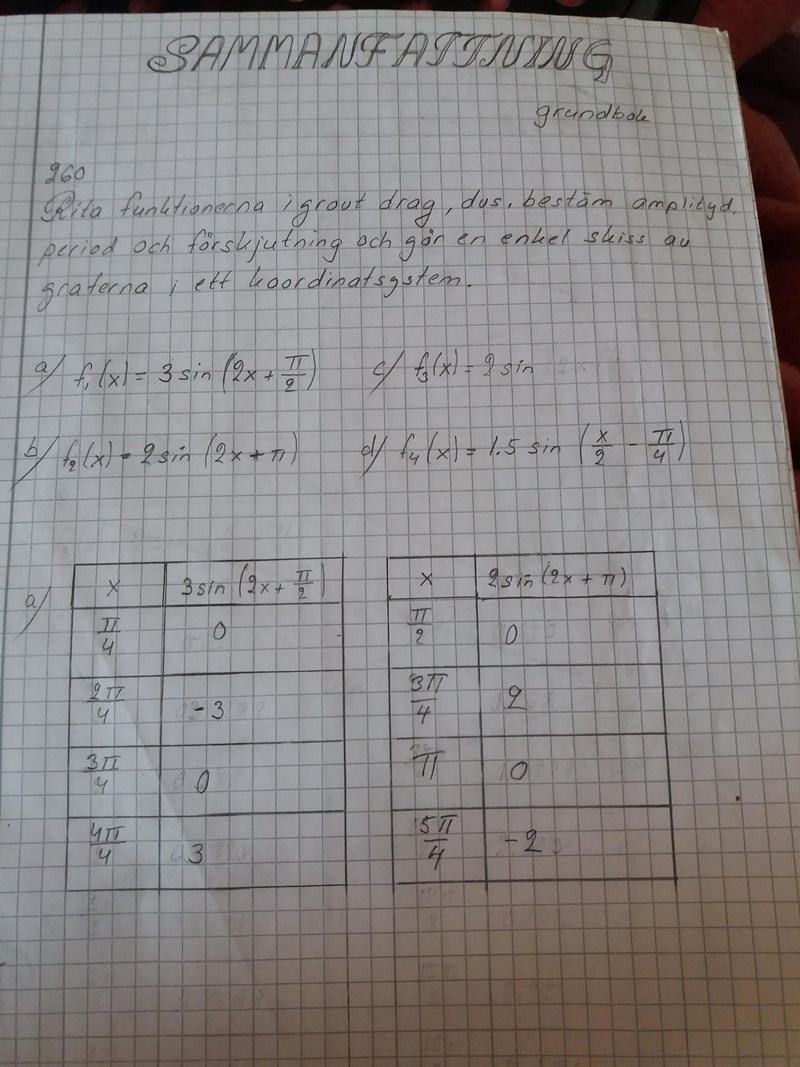 SAMMANFATTNING
grundbok
260
Rita funktionerna i grovt drag, dvs. bestäm amplityd,
period och förskjutning och gör en enkel skiss av
graferna i ett koordinatsystem.
a) f₁(x) = 3 sin (2x + π/2) c) f₃(x) = 2 sin
b) f₂(x) = 2 sin (2x + π) d) f₄(x) = 1.5 sin (x/2 - π/4)
a)
x 3 sin (2x + π/2)
π/4 0
2π/4 -3
3π/4 0
4π/4 3
x 2 sin (2x + π)
π/2 0
3π/4 2
π 0
5π/4 -2